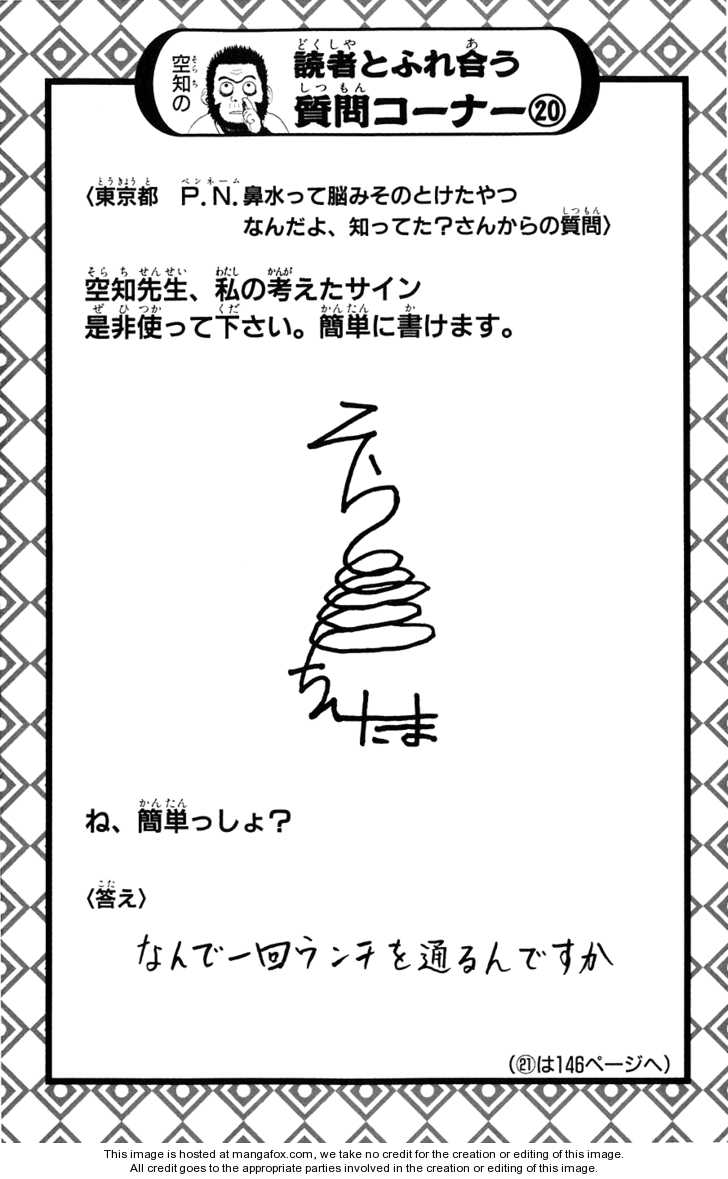 空知の
読者とふれ合う
質問コーナー⑳
〈東京都 P.N.鼻水って脳みそのとけたやつ
なんだよ、知ってた?さんからの質問〉
空知先生、私の考えたサイン
是非使って下さい。簡単に書けます。
そら
ちんたま
ね、簡単っしょ?
〈答え〉
なんで一回ウンチを通るんですか
(㉑は146ページへ)
This image is hosted at mangafox.com, we take no credit for the creation or editing of this image.
All credit goes to the appropriate parties involved in the creation or editing of this image.